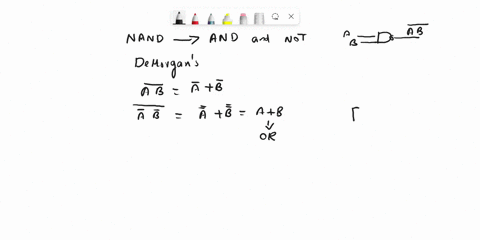 NAND → AND and NOT
A
B
A̅ ̅B̅
DeMorgan's
A̅ ̅B̅ = A̅ + B̅
\overline{A̅ B̅} = A̿ + B̿ = A + B
↓
OR